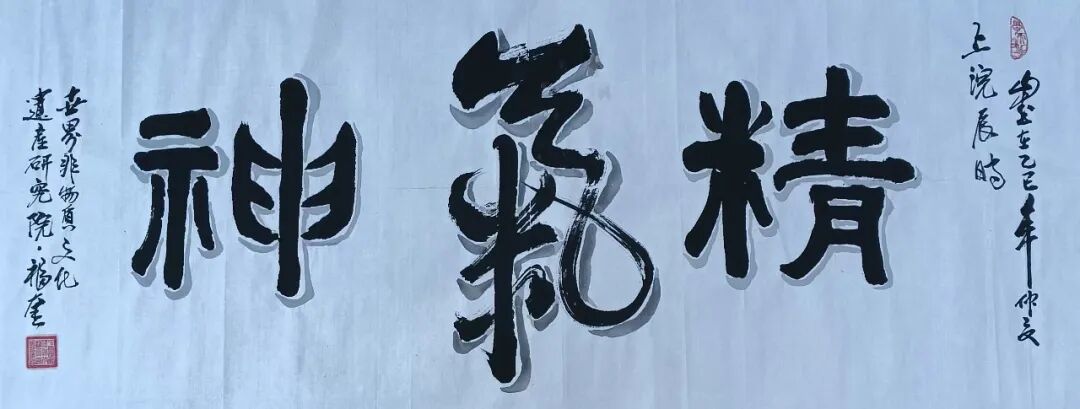 在乙巳年仲夏
上浣辰時
精氣神
世界非物质文化
遺産研究院·福奎